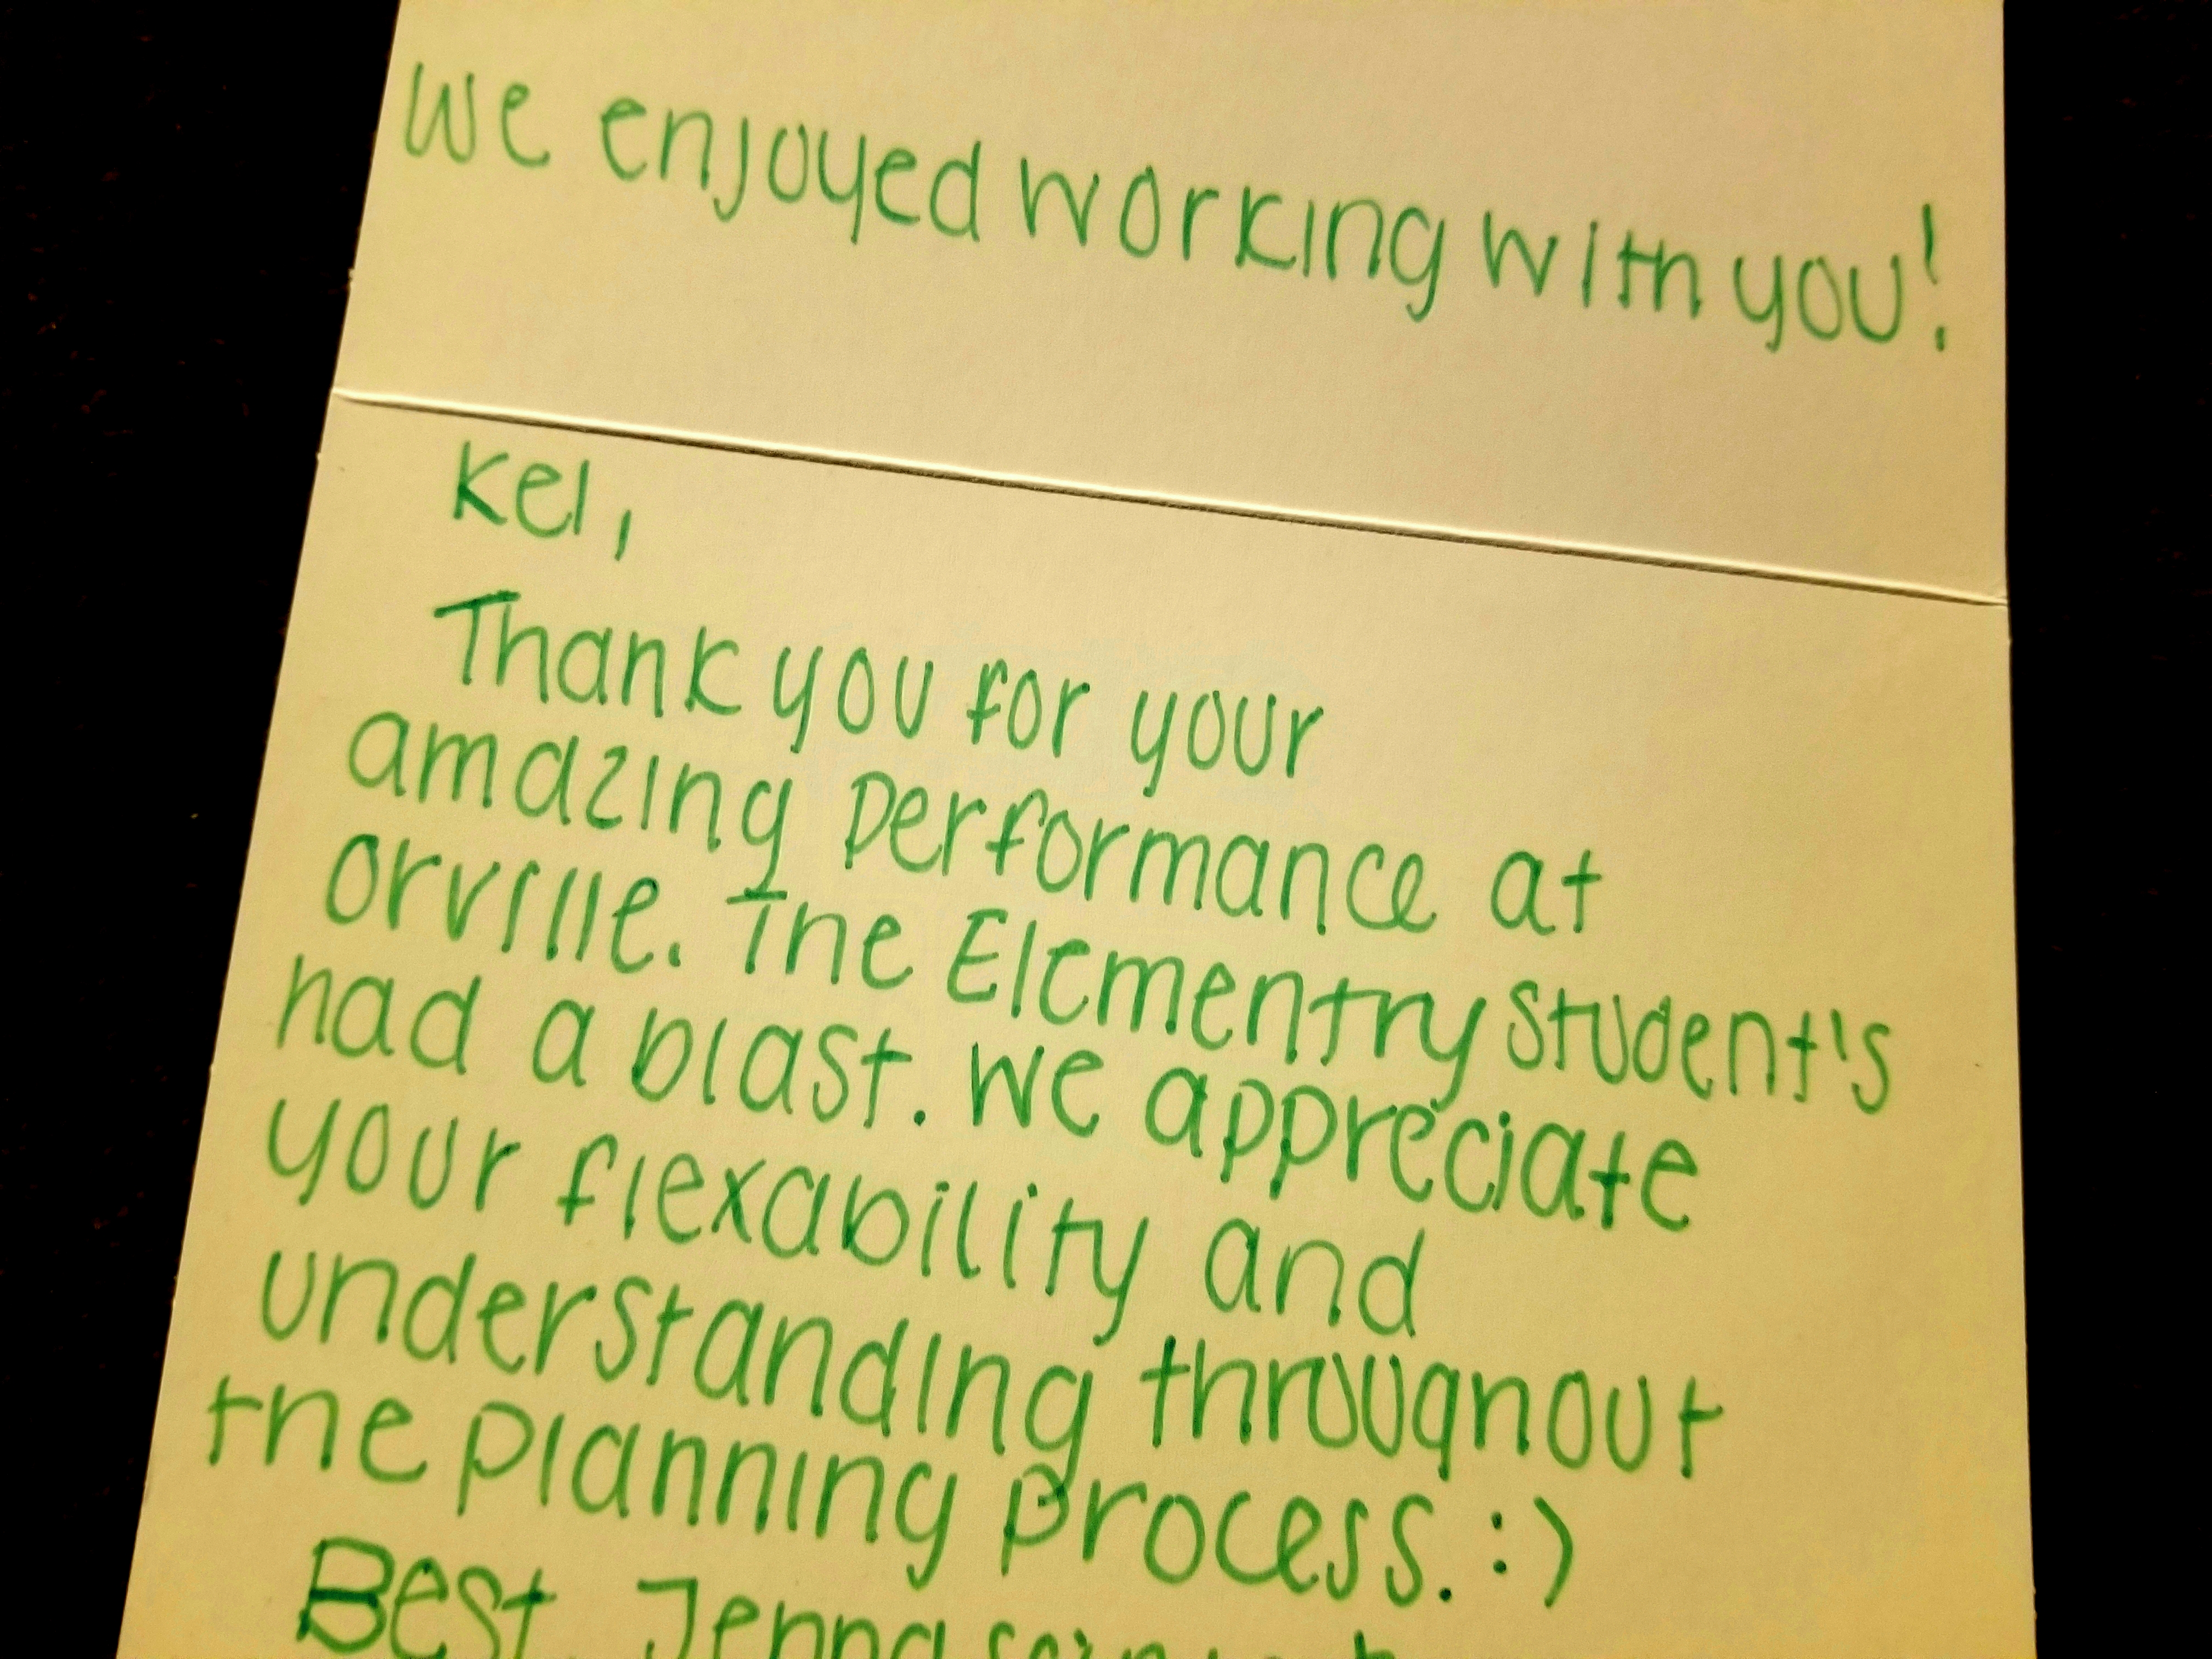 We enjoyed working with you!
Kel,
Thank you for your
amazing performance at
Orville. The Elementry Student's
had a blast. We appreciate
your flexability and
understanding throughout
the planning process. :)
Best, Jenna